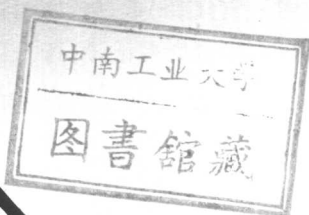 中南工业大学
图書館藏